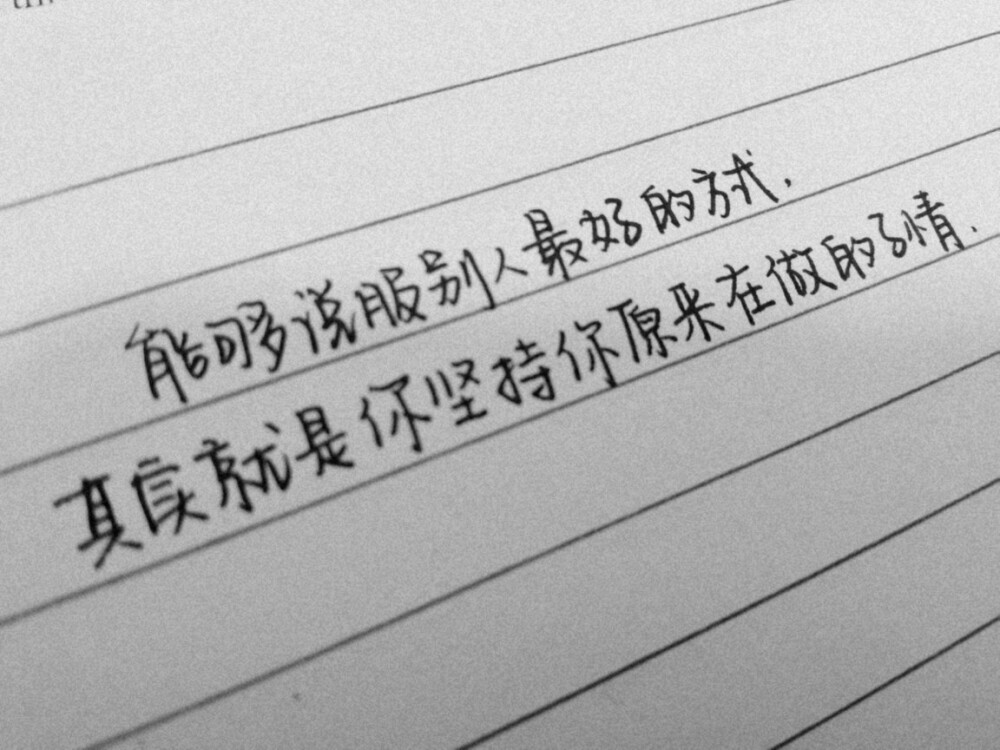 能够说服别人最好的方式.
其实就是你坚持你原来在做的事情.